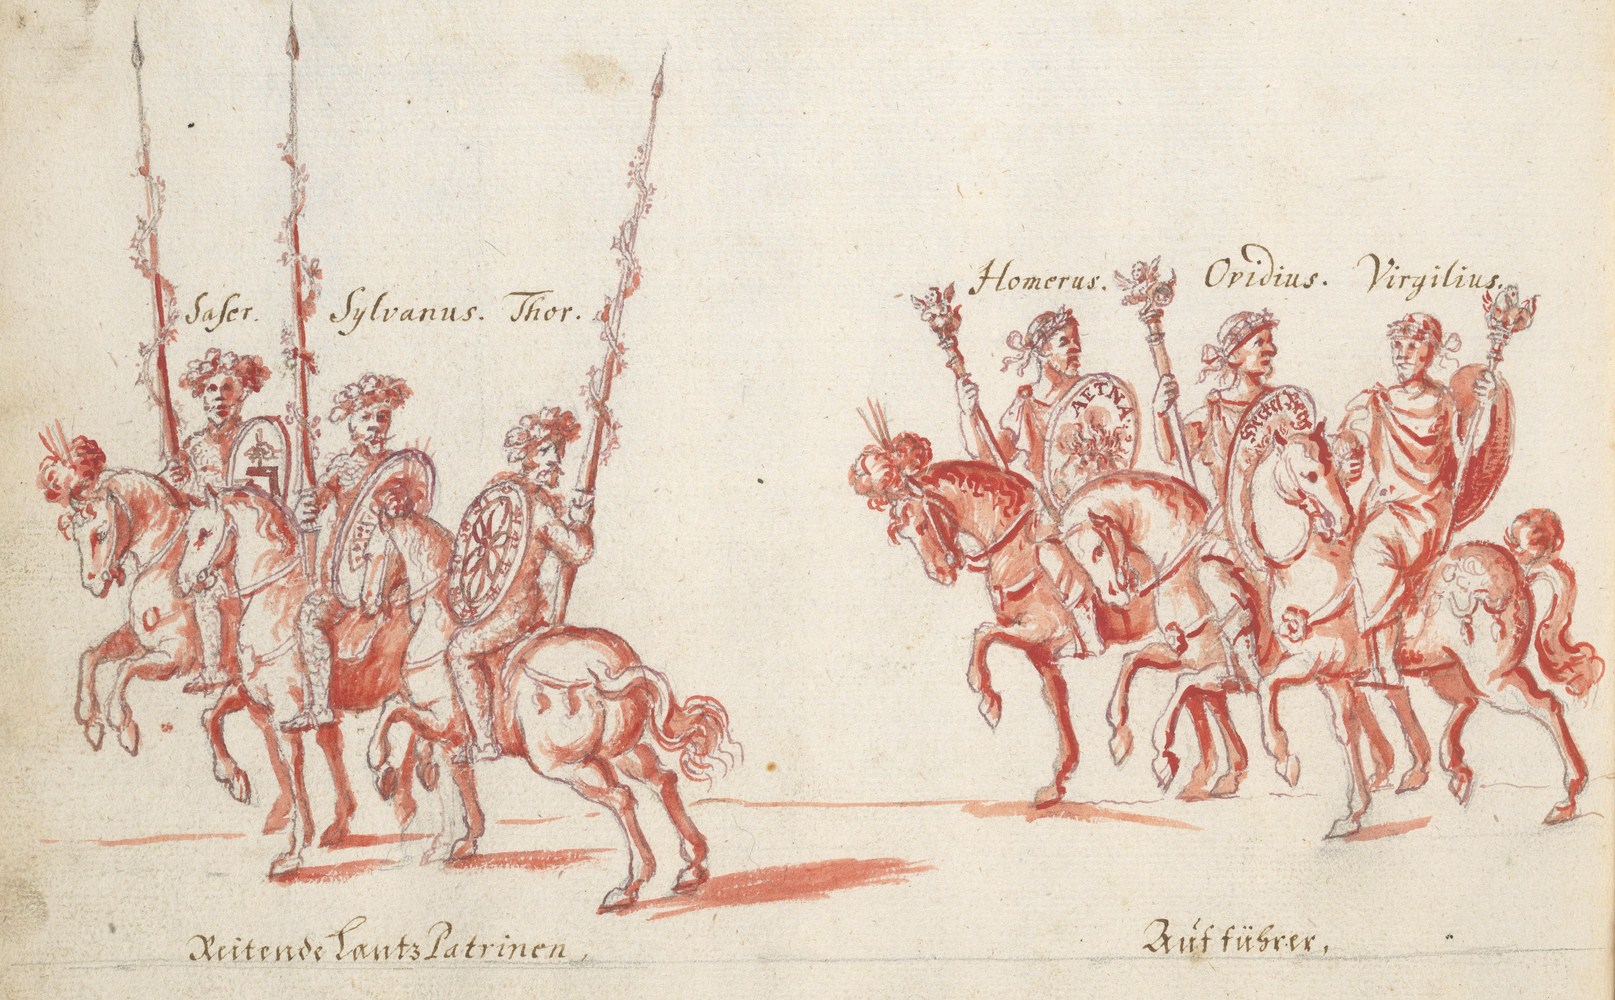 Saser.
Sylvanus.
Thor.
Homerus.
Ovidius.
Virgilius.
AETNA.
Reitende Lantz Patrinen,
Aufführer,